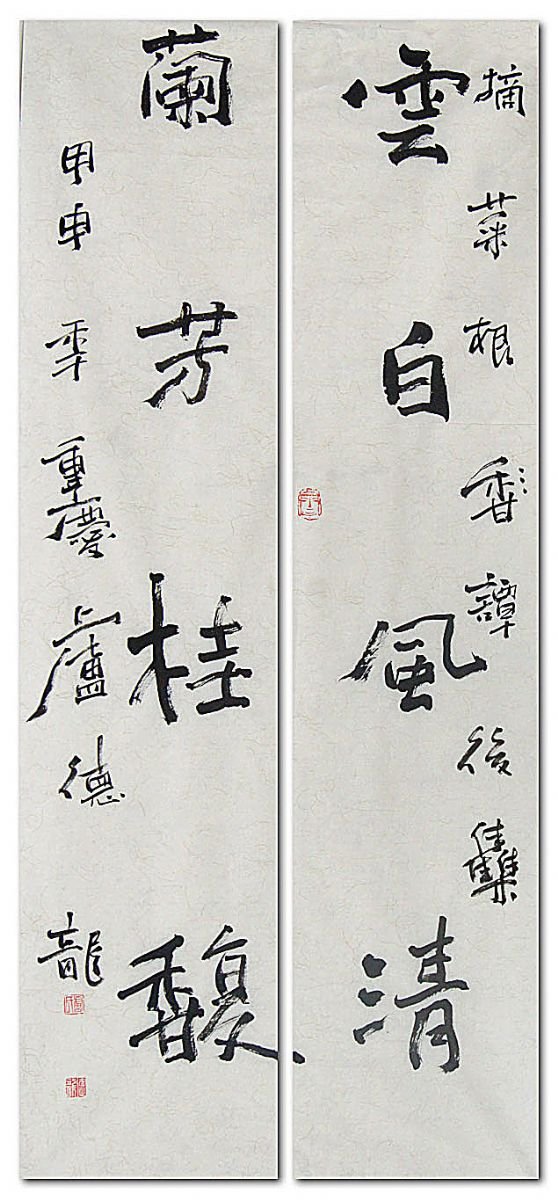 摘菜根香譚後集
雲白風清
蘭芳桂馥
甲申季重慶盧德龍